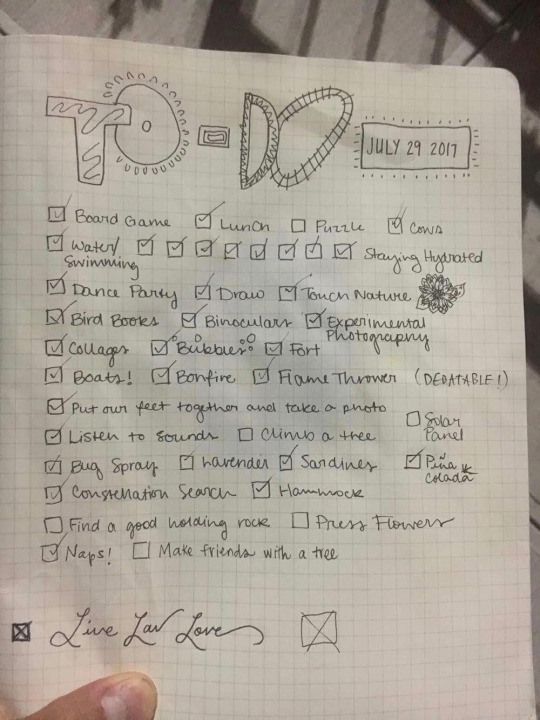 TO-DO
JULY 29 2017
Board Game Lunch Puzzle Cows
Water/ Staying Hydrated
Swimming
Dance Party Draw Touch Nature
Bird Books Binoculars Experimental
Photography
Collages Bubbles Fort
Boats! Bonfire Flame Thrower (DEBATABLE!)
Put our feet together and take a photo
Solar
Panel
Listen to sounds Climb a tree
Bug Spray Lavender Sardines Piña
Colada
Constellation Search Hammock
Find a good holding rock Press Flowers
Naps! Make friends with a tree
Live Lav Love